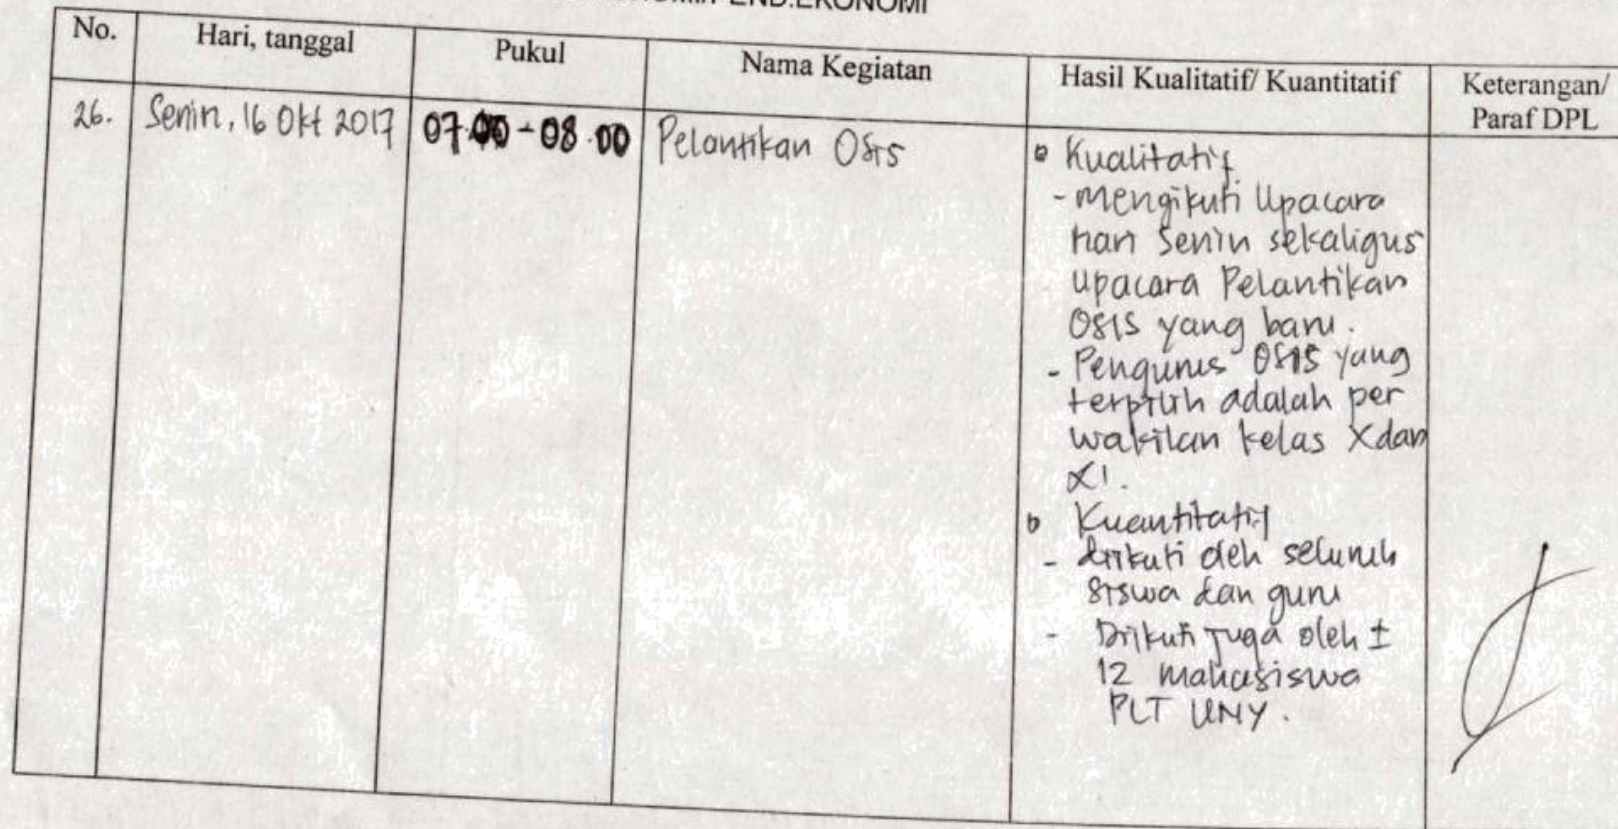 END.EKONOMI
No. Hari, tanggal Pukul Nama Kegiatan Hasil Kualitatif/ Kuantitatif Keterangan/ Paraf DPL
26. Senin, 16 Okt 2017 07.00 - 08.00 Pelantikan OSIS
Kualitatif
- Mengikuti Upacara
hari Senin sekaligus
upacara Pelantikan
OSIS yang baru.
- Pengurus OSIS yang
terpilih adalah per
wakilan kelas X dan
XI.
Kuantitatif
- diikuti oleh seluruh
siswa dan guru
- Diikuti juga oleh ±
12 mahasiswa
PLT UNY.